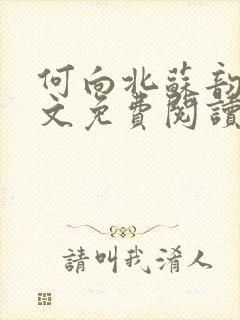 何向北蘇韵
文免費閱讀
請叫我淆人